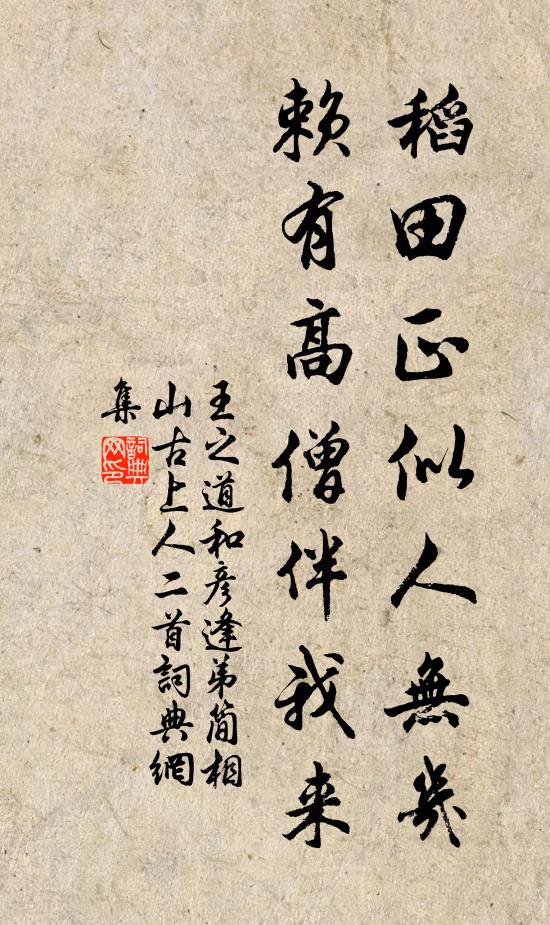 稻田正似人無幾
賴有高僧伴我來
王之道和彥逢弟簡相
山古上人二首詞典網
集
詞典
网印